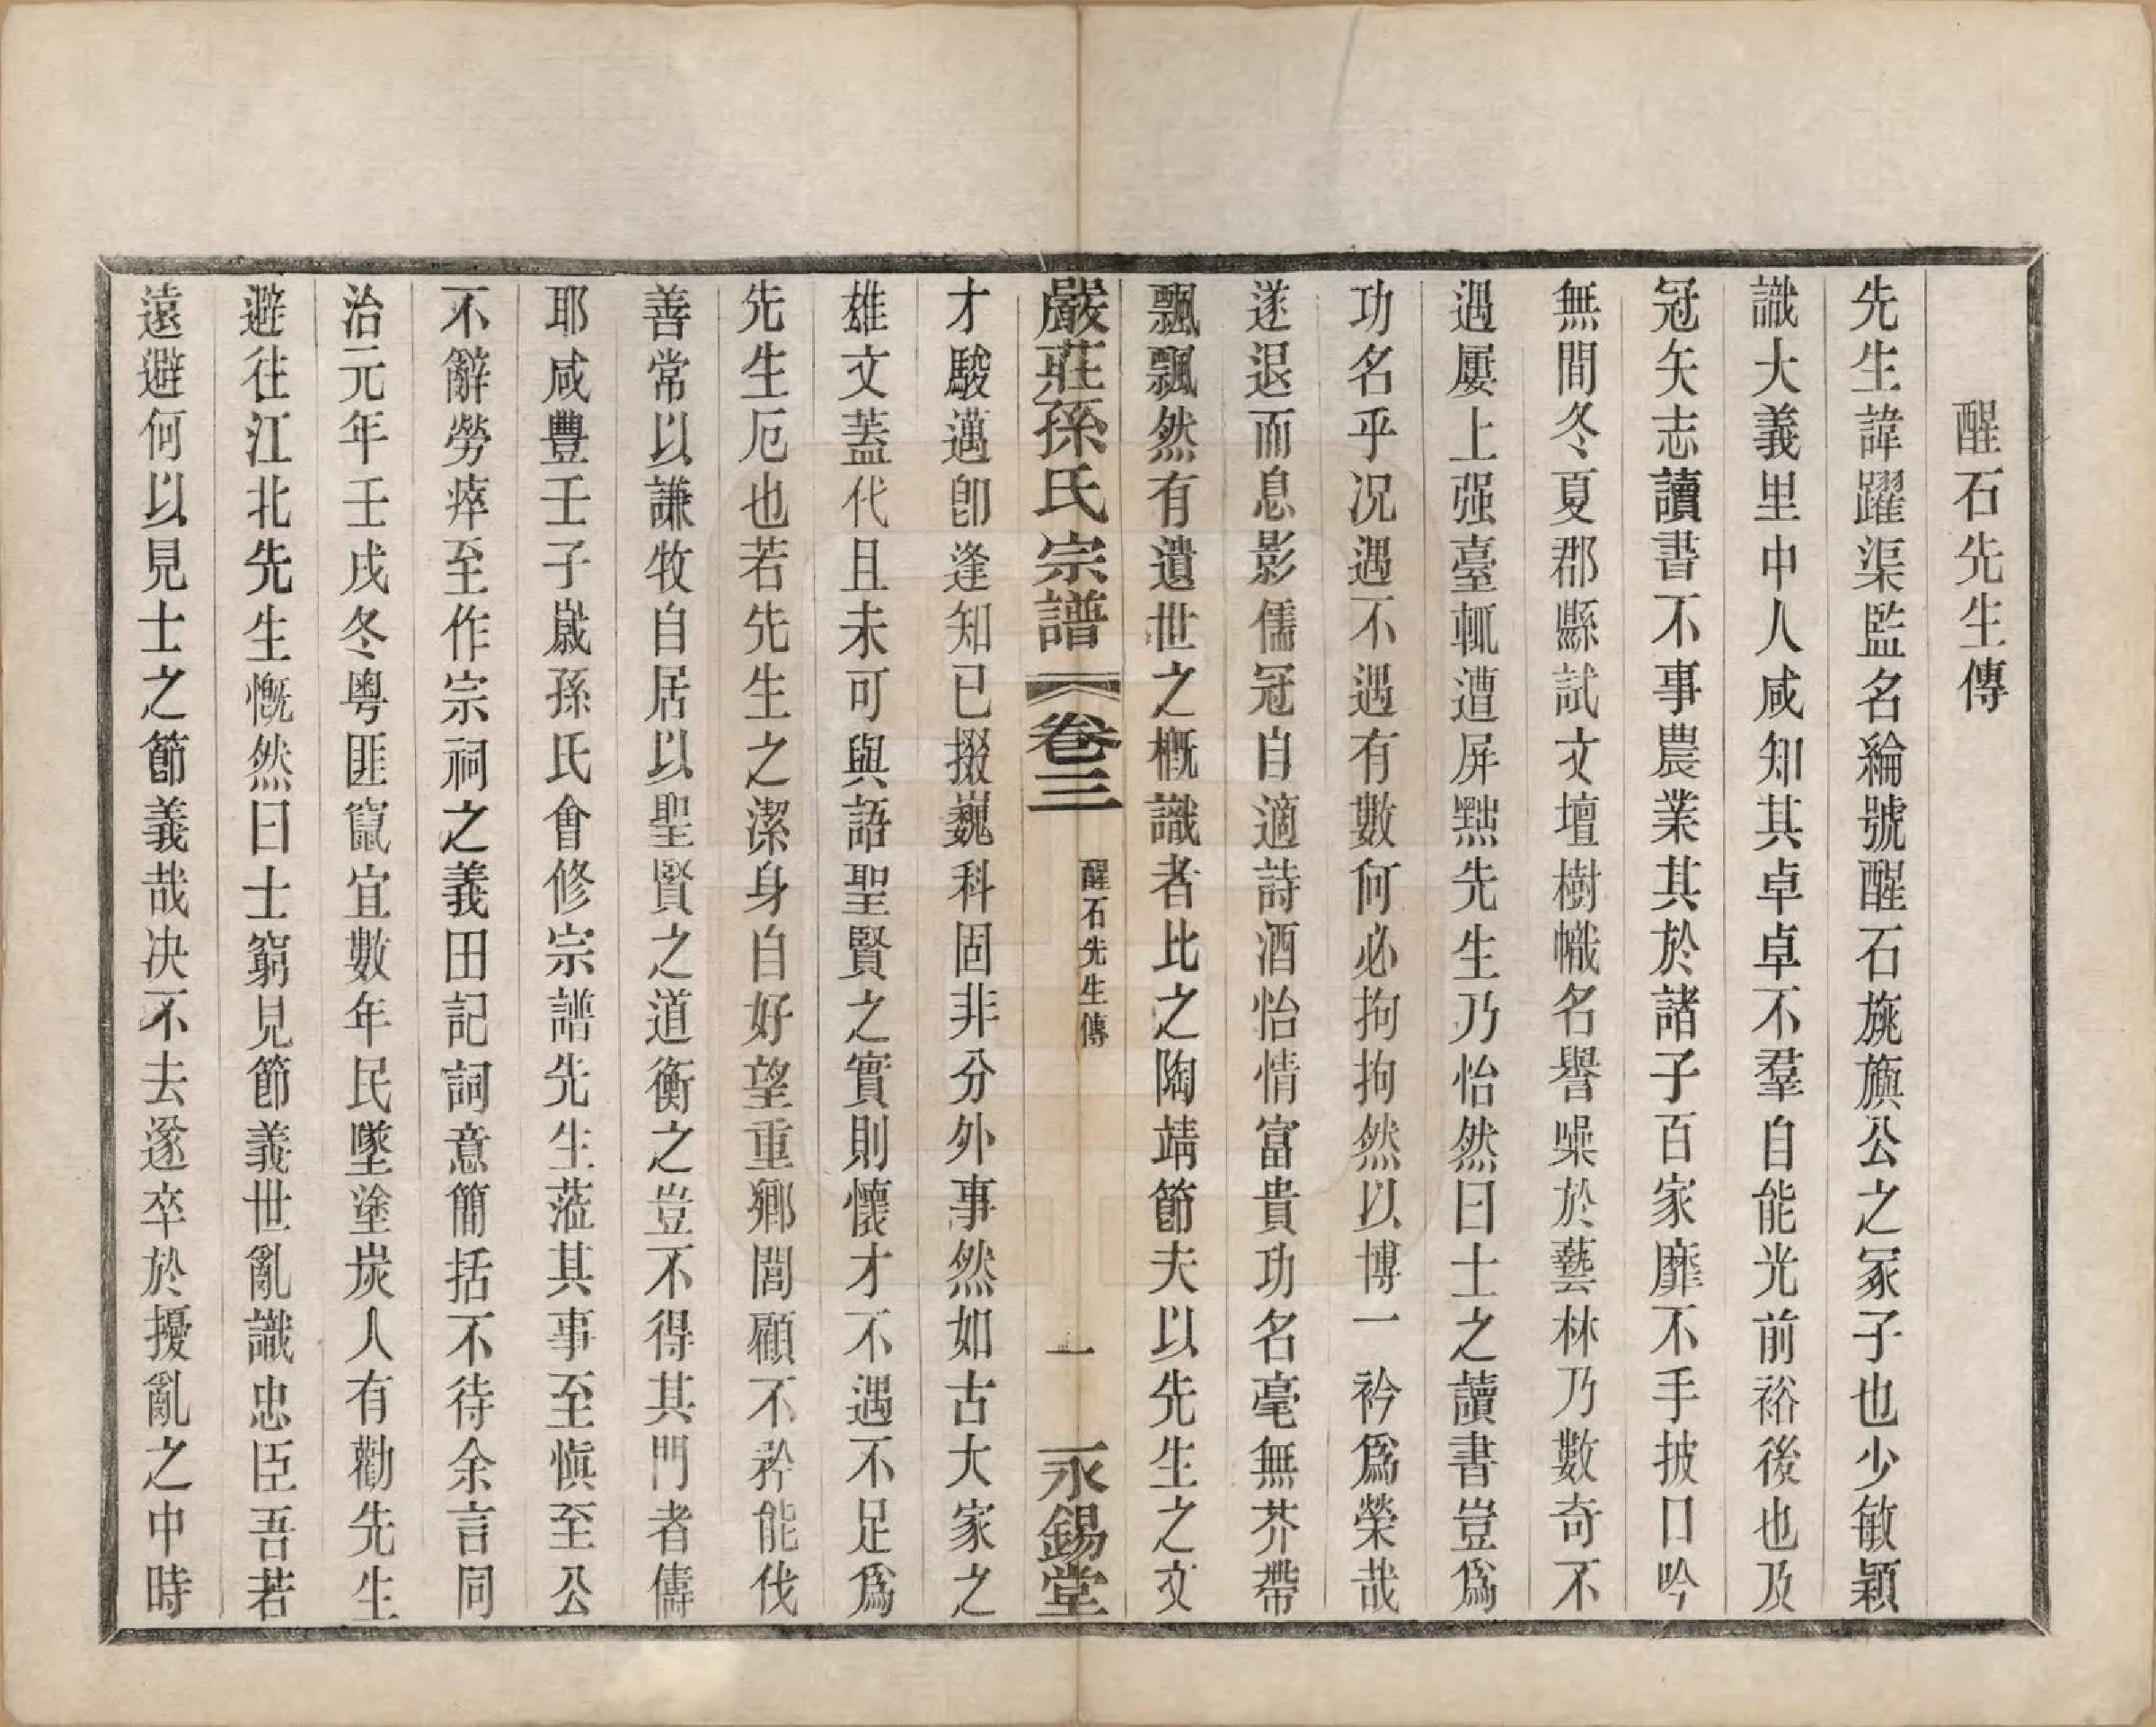 醒石先生傳
先生諱躍渠監名綸號醒石旐旟公之冢子也少敏穎
識大義里中人咸知其卓卓不羣自能光前裕後也及
冠矢志讀書不事農業其於諸子百家靡不手披口吟
無間冬夏郡縣試文壇樹幟名譽噪於藝林乃數奇不
遇屢上强臺輒遭屏黜先生乃怡然曰士之讀書豈爲
功名乎况遇不遇有數何必拘拘然以博一衿爲榮哉
遂退而息影儒冠自適詩酒怡情富貴功名毫無芥帶
飄飄然有遺世之概識者比之陶靖節夫以先生之文
嚴莊孫氏宗譜
卷三
醒石先生傳
一
永錫堂
才駿邁卽逢知已掇巍科固非分外事然如古大家之
雄文蓋代且未可與語聖賢之實則懷才不遇不足爲
先生厄也若先生之潔身自好望重鄉閭顧不矜能伐
善常以謙牧自居以聖賢之道衡之豈不得其門者儔
耶咸豐壬子嵗孫氏會修宗譜先生蒞其事至愼至公
不辭勞瘁至作宗祠之義田記詞意簡括不待余言同
治元年壬戌冬粵匪竄宜數年民墜塗炭人有勸先生
避往江北先生慨然曰士窮見節義世亂識忠臣吾若
遠避何以見士之節義哉决不去遂卒於擾亂之中時